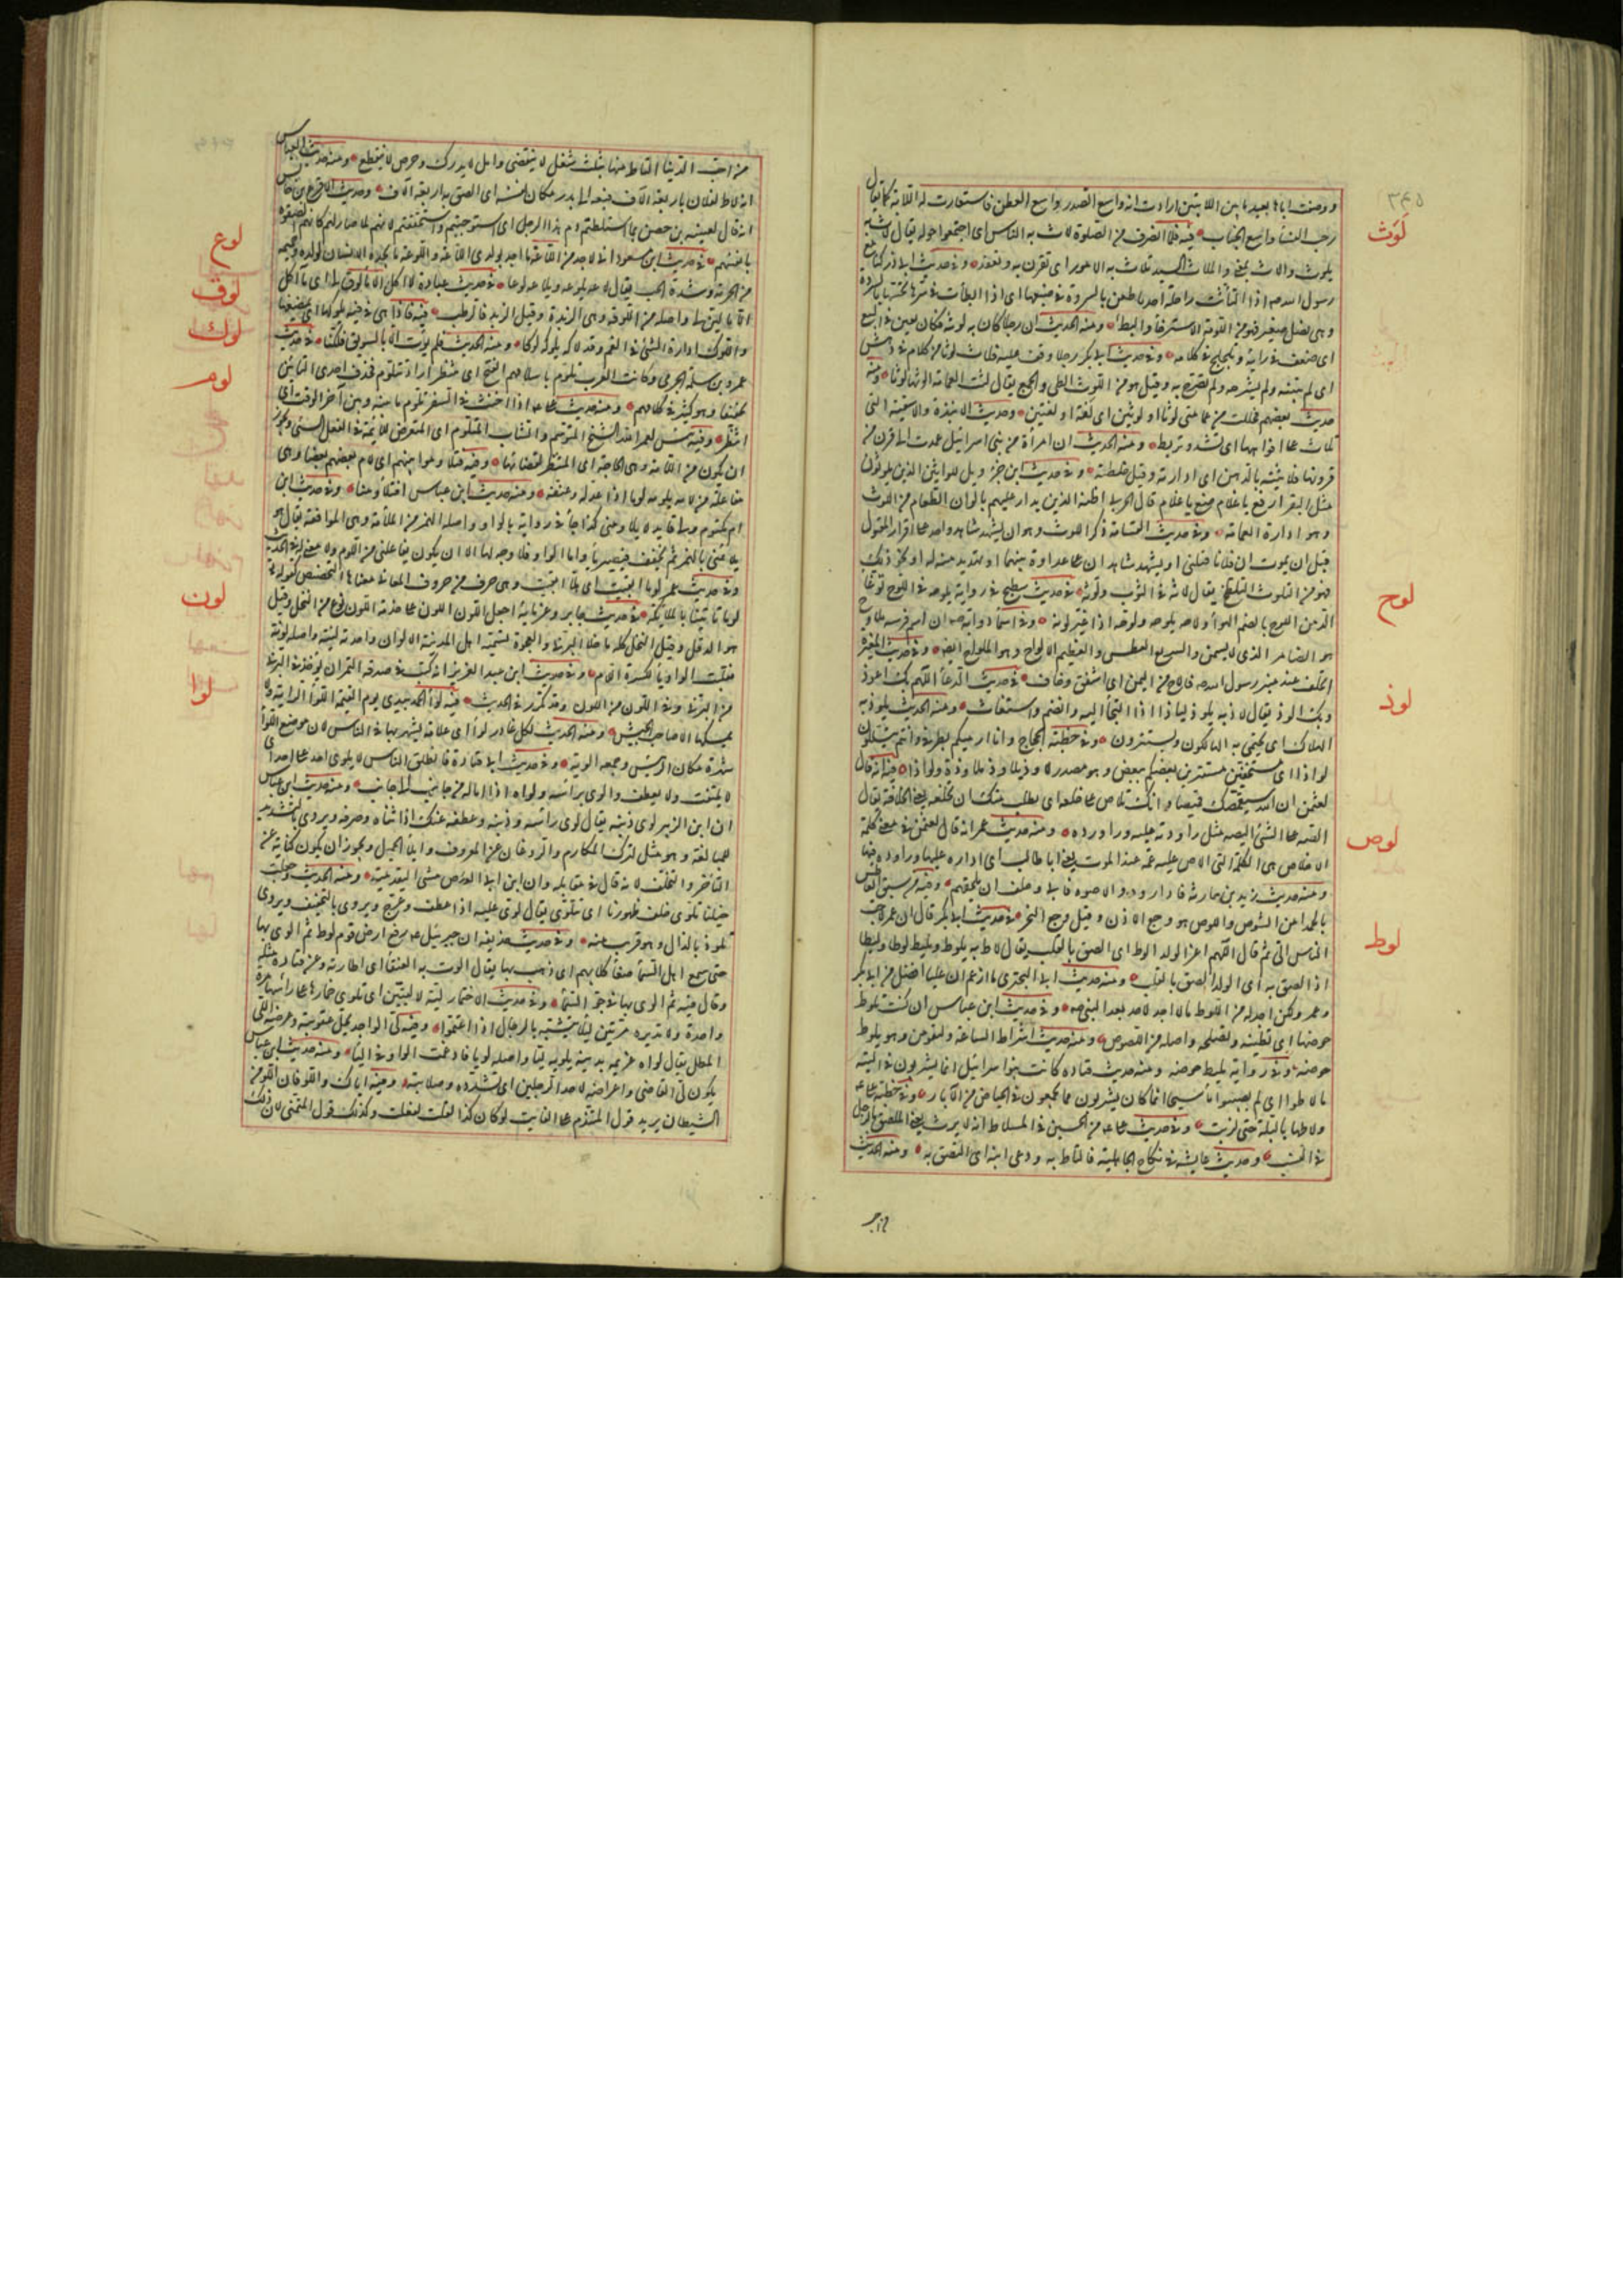 ٣٤٥
ووصفت اباها بعيد ما بين اللابتين ارادت انه واسع الصدر واسع العطن فاستعارت له اللابة كما يقال
رحب الفنا واسع الجناب فيه فلما انصرف من الصلوة لاث به الناس اى اجتمعوا حوله يقال لاث به
لوث
يلوث والاث بمعنى والملاث السيد تلاث به الامور اى تقرن به وتعقد وفى حديث ابى ذر كنا مع
رسول الله صم اذا التاثت راحلة احدنا طعن بالسروة فى ضبعها اى اذا ابطأت فى سيرها نخسها بالسروة
وهى نصل صغير فهو من اللوثة الاسترخا والبطء ومنه الحديث ان رجلا كان به لوثة فكان يغبن فى البيع
اى ضعف فى رايه وتلجلج فى كلامه وفى حديث ابى بكر ان رجلا وقف عليه فلاث لوثا من كلام فى دهش
اى لم يبينه ولم يشرحه ولم يصرح به وقيل هو من اللوث الطى والجمع يقال لثت العمامة الوثها لوثا ومنه
حديث بعضهم فحللت من عمامتى لوثا او لوثين اى لفة او لفتين وحديث الانبذة والاسقية التى
تلاث على افواهها اى تشد وتربط ومنه الحديث ان امرأة من بنى اسرائيل عمدت الى قرن من
قرونها فلاثته بالدهن اى ادارته وقيل خلطته وفى حديث ابن جزء ويل للواثين الذين يلوثون
مثل البقر ارفع يا غلام ضع يا غلام قال الحربى اظنه الذين يدار عليهم بالوان الطعام من اللوث
وهو ادارة العمامة وفى حديث القسامة ذكر اللوث وهو ان يشهد شاهد واحد على اقرار المقتول
قبل ان يموت ان فلانا قتلنى او يشهد شاهدان على عداوة بينهما او تهديد منه له او نحو ذلك
فهو من التلوث التلطخ يقال لاثه فى التراب ولوثه فى حديث سطيح فى رواية يلوحه فى اللوح بوغاء
لوح
الدمن اللوح بالضم الهواء ولاحه يلوحه ولوحه اذا غير لونه وفى اسماء دوابه صم ان اسم فرسه ملاوح
هو الضامر الذى لا يسمن والسريع العطش والعظيم الالواح وهو الملواح ايضا وفى حديث المغيرة
اتحلف عند منبر رسول الله صم فالاح من اليمين اى اشفق وخاف فى حديث الدعاء اللهم بك اعوذ
لوذ
وبك الوذ يقال لاذ به يلوذ لياذا اذا التجأ اليه وانضم واستغاث ومنه الحديث يلوذ به
الهلاك اى يحتمى به الهالكون ويستترون وفى خطبة الحجاج وانا ارميكم بطرفى وانتم تتسللون
لواذا اى مستخفين مستترين بعضكم ببعض وهو مصدر لاوذ يلاوذ ملاوذة ولواذا فيه انه قال
لوص
لعثمن ان الله سيقمصك قميصا وانك تلاص على خلعه اى يطلب منك ان تخلعه يعنى الخلافة يقال
الصته على الشئ اليصه مثل راودته عليه وداورته ومنه حديث عمر انه قال لعثمن فى معنى كلمة
الاخلاص هى الكلمة التى الاص عليها عمه عند الموت يعنى ابا طالب اى اداره عليها وراوده فيها
ومنه حديث زيد بن حارثة فاداروه والاصوه فابى وحلف ان لا يلحقهم وفيه من سبق العاطس
بالحمد امن الشوص واللوص هو وجع الاذن وقيل وجع النحر فى حديث ابى بكر قال ان عمر لاحب
لوط
الناس الى ثم قال اللهم اعز الولد الوط اى الصق بالقلب يقال لاط به يلوط ويليط لوطا وليطا
اذا الصق به اى الولد الصق بالقلب ومنه حديث ابى البخترى ما ازعم ان عليا افضل من ابى بكر
وعمر ولكن اجد له من اللوط ما لا اجد لاحد بعد النبى صم وفى حديث ابن عباس ان كنت تلوط
حوضها اى تطينه وتصلحه واصله من اللصوق ومنه حديث اشراط الساعة ولتقومن وهو يلوط
حوضه وفى رواية يليط حوضه ومنه حديث قتادة كانت بنوا اسرائيل انما يشربون فى التيه
ما لاطوا اى لم يصيبوا ماء سيحا انما كان يشربون مما يجمعون فى الحياض من الآبار وفى خطبة على
ولاطها بالبلة حتى لزبت وفى حديث على بن الحسين فى المستلاط انه لا يرث يعنى الملصق بالرجل
فى النسب وحديث عايشة فى نكاح الجاهلية فالتاط به ودعى ابنه اى التصق به ومنه الحديث
من احب
من احب الدنيا التاط منها بثلث شغل لا ينقضى وامل لا يدرك وحرص لا ينقطع ومنه حديث العباس
انه لاط لفلان باربعة الآف فبعثه الى بدر مكان نفسه اى الصق به اربعة الآف وحديث الاقرع بن حابس
انه قال لعيينة بن حصن بما استلطتم دم هذا الرجل اى استوجبتم واستحققتم لانهم لما صار لهم كانهم الصقوه
بانفسهم فى حديث ابن مسعود انى لاجد من اللاعة ما اجد بولدى اللاعة واللوعة ما يجده الانسان لولده وحميمه
لوع
من الحرقة وشدة الحب يقال لاعه يلوعه ويلاعه لوعا فى حديث عبادة لا اكل الا ما لوق لى اى ما آكل
لوق
الا ما لين لى واصله من اللوقة وهى الزبدة وقيل الزبد فى الرطب فيه فاذا هى فى فيه يلوكها اى يمضغها
لوك
واللوك ادارة الشئ فى الفم وقد لاكه يلوكه لوكا ومنه الحديث فلم يؤت الا بالسويق فلكنا فى حديث
لوم
عمرو بن سلمة الجرمى وكانت العرب تلوم باسلامهم الفتح اى تنتظر ارادة تتلوم فحذف احدى التائين
تخفيفا وهو كثير فى كلامهم ومنه حديث على اذا اجنب فى السفر تلوم ما بينه وبين آخر الوقت اى
انتظر وفيه بئس لعمر الله الشيخ المتوسم والشاب المتلوم اى المتعرض للائمة فى الفعل السئ ويجوز
ان يكون من اللامة وهى الحاجة اى المنتظر لقضائها وفيه فتلاوموا بينهم اى لام بعضهم بعضا وهى
مفاعلة من لامه يلومه لوما اذا عذله وعنفه ومنه حديث ابن عباس فتلاومنا وفى حديث ابن
ام مكتوم ولى قايد لا يلاومنى كذا جاء فى رواية بالواو واصله الهمز من الملأمة وهى الموافقة يقال هو
يلائمنى بالهمز ثم يخفف فيصير ياء واما الواو فلا وجه لها الا ان يكون يفاعلنى من اللوم ولا معنى له فى الحديث
وفى حديث عمر لوما ابقيت اى هلا ابقيت وهى حرف من حروف المعانى معناها التحضيض كقوله تعالى
لوما تاتينا بالملائكة فى حديث جابر وغرمائه اجعل اللون على حدته اللون نوع من النخل وقيل
لون
هو الدقل وقيل النخل كله ما خلا البرنى والعجوة تسميه اهل المدينة الالوان واحدته لينة واصله لونة
فقلبت الواو ياء لكسرة اللام وفى حديث ابن عبد العزيز انه كتب فى صدقة التمر ان يؤخذ فى البرنى
من البرنى وفى اللون من اللون وقد تكرر فى الحديث فيه لواء الحمد بيدى يوم القيمة اللواء الراية ولا
لوا
يمسكها الا صاحب الجيش ومنه الحديث لكل غادر لواء اى علامة يشهر بها فى الناس لان موضع اللواء
شهرة مكان الرئيس وجمعه الوية وفى حديث ابى قتادة فانطلق الناس لا يلوى احد على احد اى
لا يلتفت ولا يعطف والوى براسه ولواه اذا اماله من جانب الى جانب ومنه حديث ابن عباس
ان ابن الزبير لوى ذنبه يقال لوى راسه وذنبه وعطفه عنك اذا ثناه وصرفه ويروى بالتشديد
للمبالغة وهو مثل لترك المكارم والروغان عن المعروف وايلاء الجميل ويجوز ان يكون كناية عن
التاخر والتخلف لانه قال فى مقابله وان ابن ابى العاص مشى اليقدمية ومنه الحديث وجعلت
خيلنا تلوى خلف ظهورنا اى تتلوى يقال لوى عليه اذا عطف وعرج ويروى بالتخفيف ويروى
تلوذ بالذال وهو قريب منه وفى حديث حذيفة ان جبرئيل عم رفع ارض قوم لوط ثم الوى بها
حتى سمع اهل السماء ضغاء كلابهم اى ذهب بها يقال الوت به العنقاء اى اطارته وعن قتادة مثله
وقال فيه ثم الوى بها فى جو السماء وفى حديث الاختمار لية لا ليتين اى تلوى خمارها على راسها مرة
واحدة ولا تديره مرتين ليلا تتشبه بالرجال اذا اعتموا وفيه لى الواجد يحل عقوبته وعرضه اللى
المطل يقال لواه غريمه بدينه يلويه ليا واصله لويا فادغمت الواو فى الياء ومنه حديث ابن عباس
يكون لى القاضى واعراضه لاحد الرجلين اى تشدده وصلابته وفيه اياك واللو فان اللو من
الشيطان يريد قول المتندم على الفايت لو كان كذا لقلت لفعلت وكذلك قول المتمنى لان ذلك